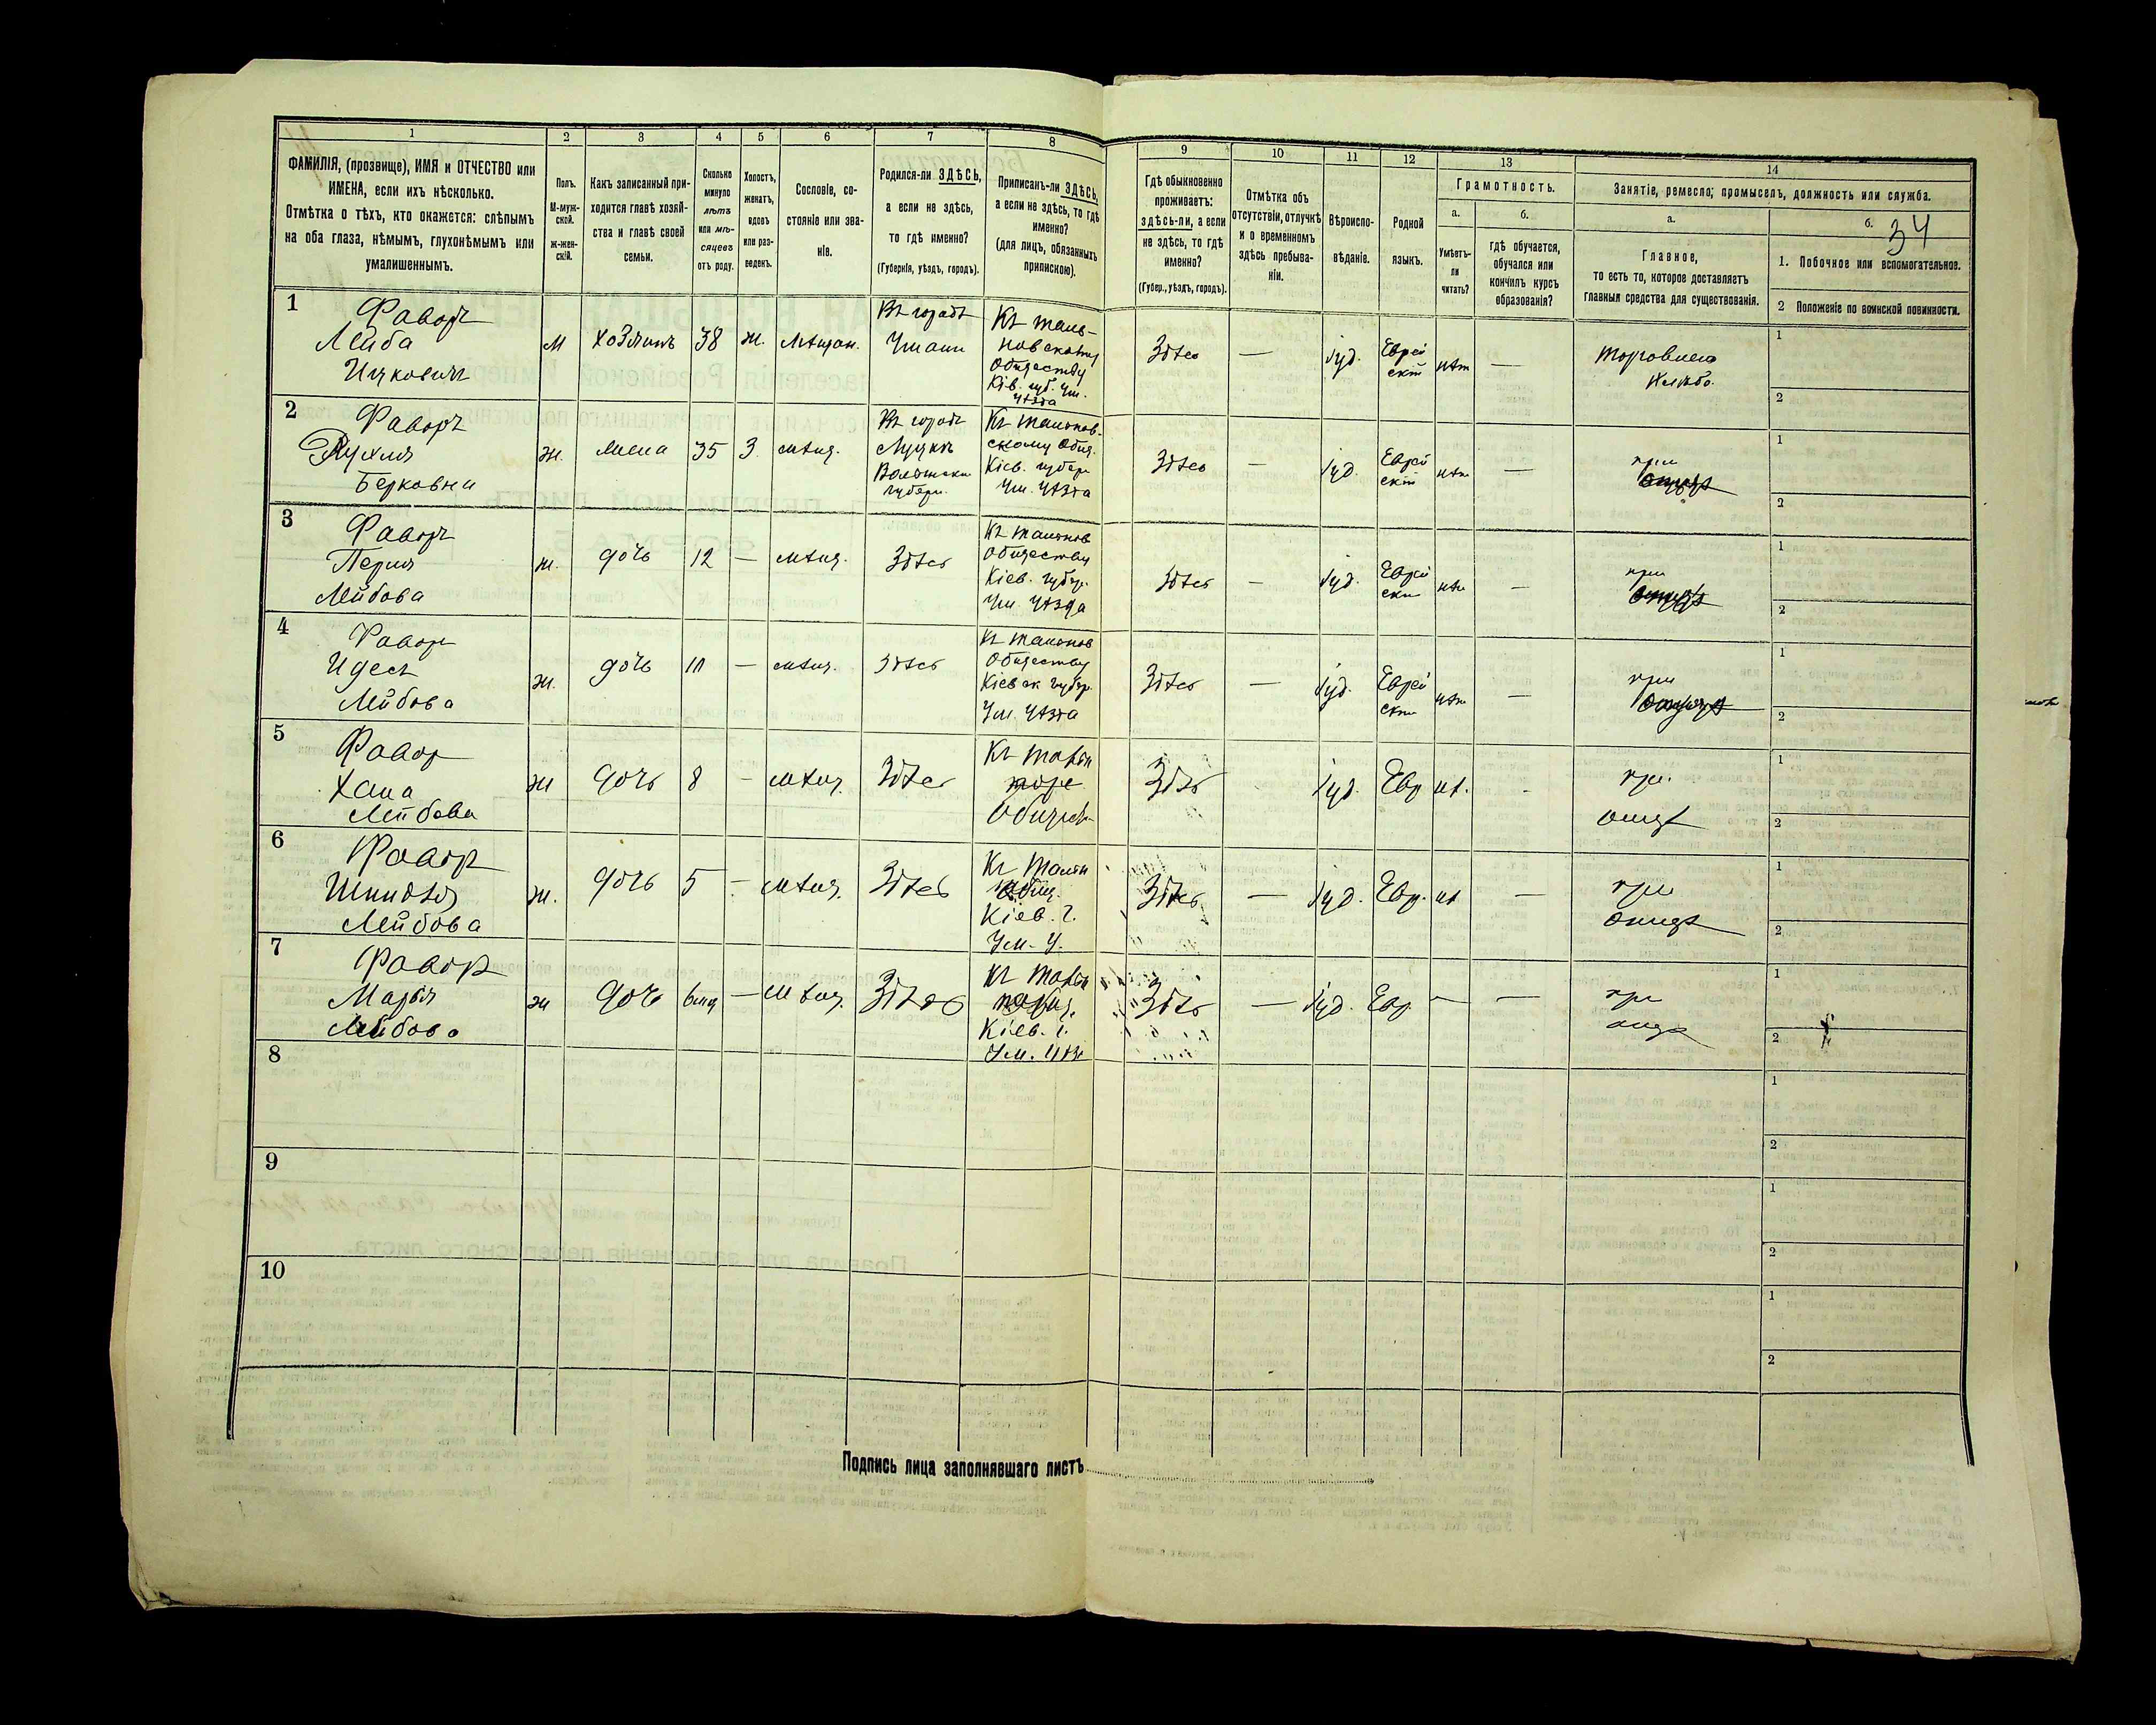 1 2 3 4 5 6 7 8 9 10 11 12 13 14
ФАМИЛІЯ, (прозвище), ИМЯ и ОТЧЕСТВО или
ИМЕНА, если ихъ нѣсколько.
Отмѣтка о тѣхъ, кто окажется: слѣпымъ
на оба глаза, нѣмымъ, глухонѣмымъ или
умалишеннымъ.
Полъ.
М-муж-
ской.
Ж-жен-
скій.
Какъ записанный при-
ходится главѣ хозяй-
ства и главѣ своей
семьи.
Сколько
минуло
лѣтъ
или мѣ-
сяцевъ
отъ роду.
Холостъ,
женатъ,
вдовъ
или раз-
веденъ.
Сословіе, со-
стояніе или зва-
ніе.
Родился-ли ЗДѢСЬ,
а если не здѣсь,
то гдѣ именно?
(Губернія, уѣздъ, городъ).
Приписанъ-ли ЗДѢСЬ,
а если не здѣсь, то гдѣ
именно?
(для лицъ, обязанныхъ
припискою).
Гдѣ обыкновенно
проживаетъ:
здѣсь-ли, а если
не здѣсь, то гдѣ
именно?
(Губер., уѣздъ, городъ).
Отмѣтка объ
отсутствіи, отлучкѣ
и о временномъ
здѣсь пребыва-
ніи.
Вѣроиспо-
вѣданіе.
Родной
языкъ.
Грамотность.
а.
Умѣетъ-
ли
читать?
б.
гдѣ обучается,
обучался или
кончилъ курсъ
образованія?
Занятіе, ремесло, промыселъ, должность или служба.
а.
Главное,
то есть то, которое доставляетъ
главныя средства для существованія.
б. 34
1. Побочное или вспомогательное.
2 Положеніе по воинской повинности.
1
Фаворъ
Лейба
Ицковичъ
м
хозяинъ
38
ж.
мѣщан.
Въ городѣ
Умани
Къ таль-
новскому
Обществу
Кіев. губ. Ум.
уѣзда
Здѣсь
—
іуд.
Еврей
скій
нѣт
—
торговля
1
2
2
Фаворъ
Рухля
Берковна
ж.
жена
35
З.
мѣщ.
Въ городѣ
Луцкѣ
Волынской
губерн.
Къ тальнов-
скому Общ.
Кіев. губер.
Ум. уѣзда
Здѣсь
—
іуд.
Еврей
скій
нѣт
—
при
1
2
3
Фаворъ
Перля
Лейбова
ж.
дочь
12
—
мѣщ.
Здѣсь
Къ тальнов
Обществу
Кіев. губер.
Ум. уѣзда
Здѣсь
—
іуд.
Еврей
скій
нѣт
—
при
1
2
4
Фавор
Идесъ
Лейбова
ж.
дочь
10
—
мѣщ.
здѣсь
Къ тальнов
Обществу
Кіевск губер.
Ум. уѣзда
Здѣсь
—
іуд.
Еврей
скій
нѣт
—
при
1
2
5
Фавор
Хана
Лейбова
ж
дочь
8
—
мѣщ.
Здѣсь
Къ
Здѣсь
іуд.
Евр
нѣ.
-
при
отцѣ
1
2
6
Фавор
Шпиндзя
Лейбова
ж.
дочь
5
—
мѣщ.
Здѣсь
Къ Тальн
общ.
Кіев. г.
Ум. у.
Здѣсь
—
іуд.
Евр.
нѣ
—
при
отцѣ
1
2
7
Фавор
Марья
Лейбова
ж
дочь
6 мѣ
—
мѣщ.
Здѣсь
Къ
Кіев. г.
Ум. уѣз
Здѣсь
—
іуд.
Евр
—
—
при
отцѣ
1
2
8
1
2
9
1
2
10
1
2
Подпись лица заполнявшаго листъ